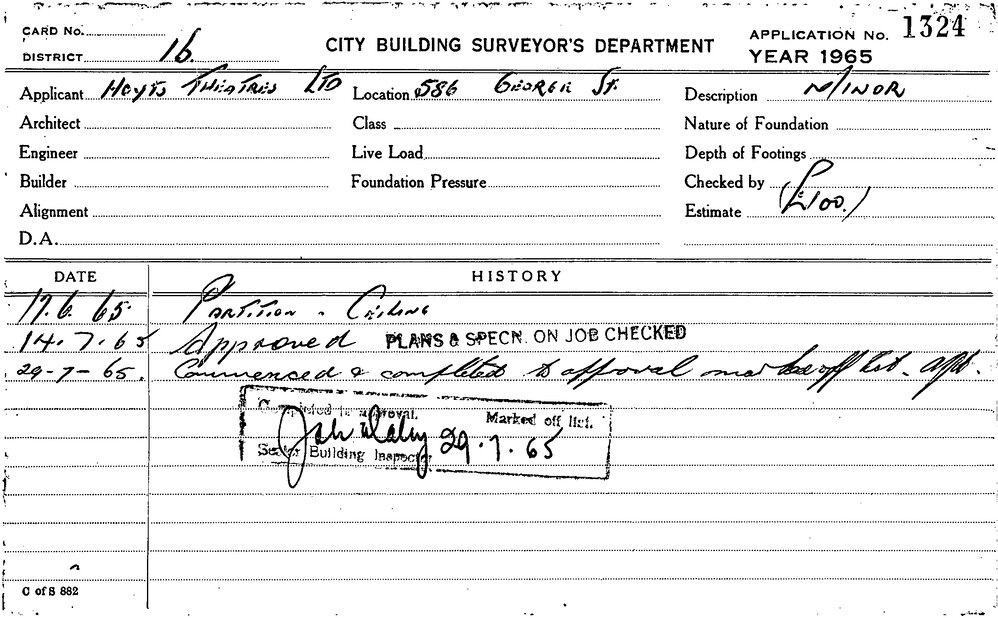 CARD No.
DISTRICT 16.
CITY BUILDING SURVEYOR'S DEPARTMENT
APPLICATION No. 1324
YEAR 1965
Applicant HOYTS THEATRES LTD Location 586 GEORGE ST. Description MINOR
Architect Class Nature of Foundation
Engineer Live Load Depth of Footings
Builder Foundation Pressure Checked by
Alignment Estimate (£100.)
D.A.
DATE HISTORY
17.6.65 PARTITION - CEILING
14.7.65 Approved PLANS & SPECN. ON JOB CHECKED
29-7-65. Commenced & completed to approval mark off list.
Completed to approval. Marked off list.
29.7.65
Senior Building Inspector
C of S 882